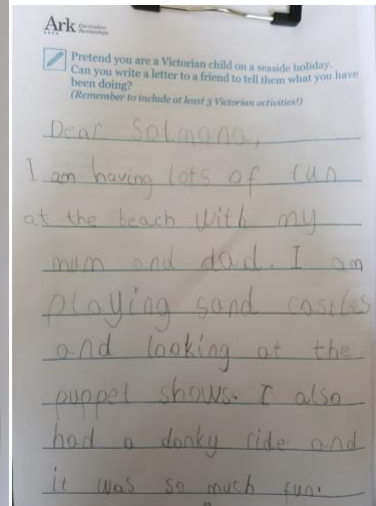 Ark Curriculum
Partnerships
Pretend you are a Victorian child on a seaside holiday.
Can you write a letter to a friend to tell them what you have
been doing?
(Remember to include at least 3 Victorian activities!)
Dear Salmana,
I am having lots of fun
at the beach with my
mum and dad. I am
playing sand castles
and looking at the
puppet shows. I also
had a donky ride and
it was so much fun.